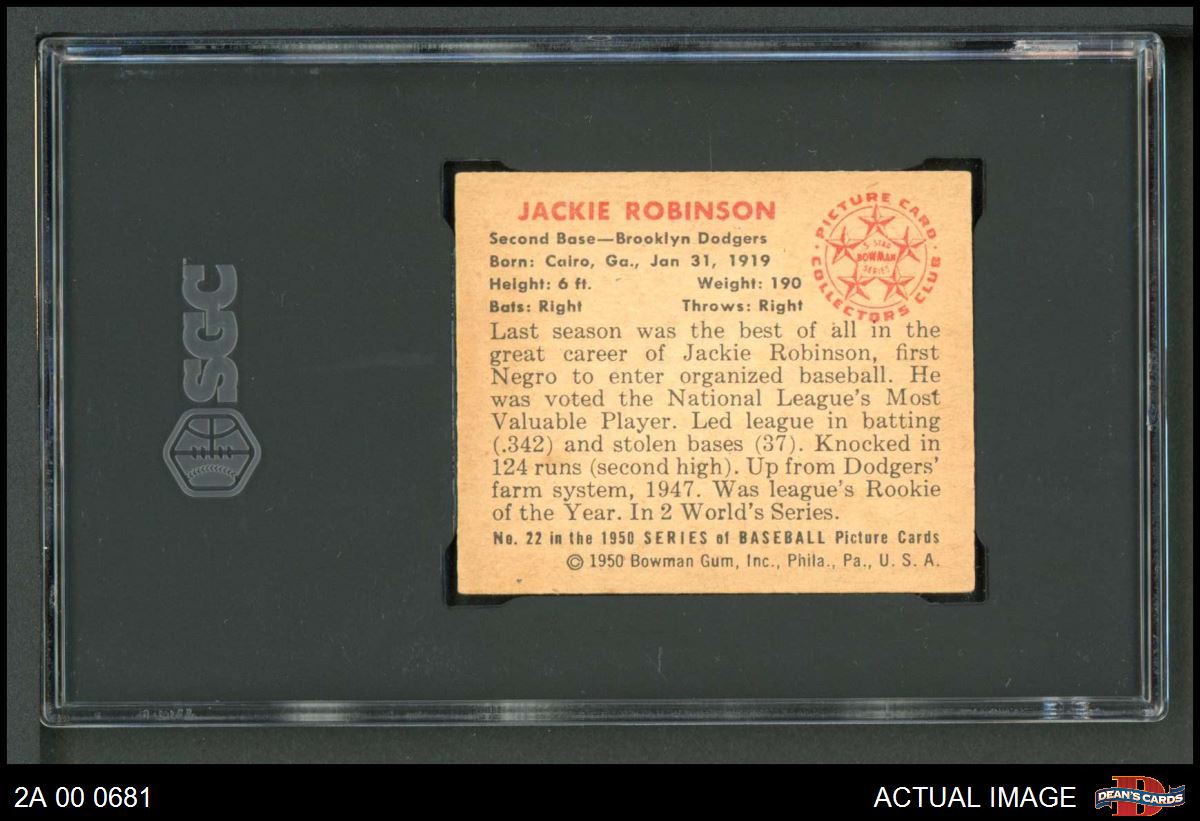 SGC
JACKIE ROBINSON
Second Base—Brooklyn Dodgers
Born: Cairo, Ga., Jan 31, 1919
Height: 6 ft. Weight: 190
Bats: Right Throws: Right
PICTURE CARD COLLECTORS CLUB
5 STAR
BOWMAN
SERIES
Last season was the best of all in the
great career of Jackie Robinson, first
Negro to enter organized baseball. He
was voted the National League's Most
Valuable Player. Led league in batting
(.342) and stolen bases (37). Knocked in
124 runs (second high). Up from Dodgers'
farm system, 1947. Was league's Rookie
of the Year. In 2 World's Series.
No. 22 in the 1950 SERIES of BASEBALL Picture Cards
© 1950 Bowman Gum, Inc., Phila., Pa., U. S. A.
2A 00 0681
ACTUAL IMAGE
D
DEAN'S CARDS